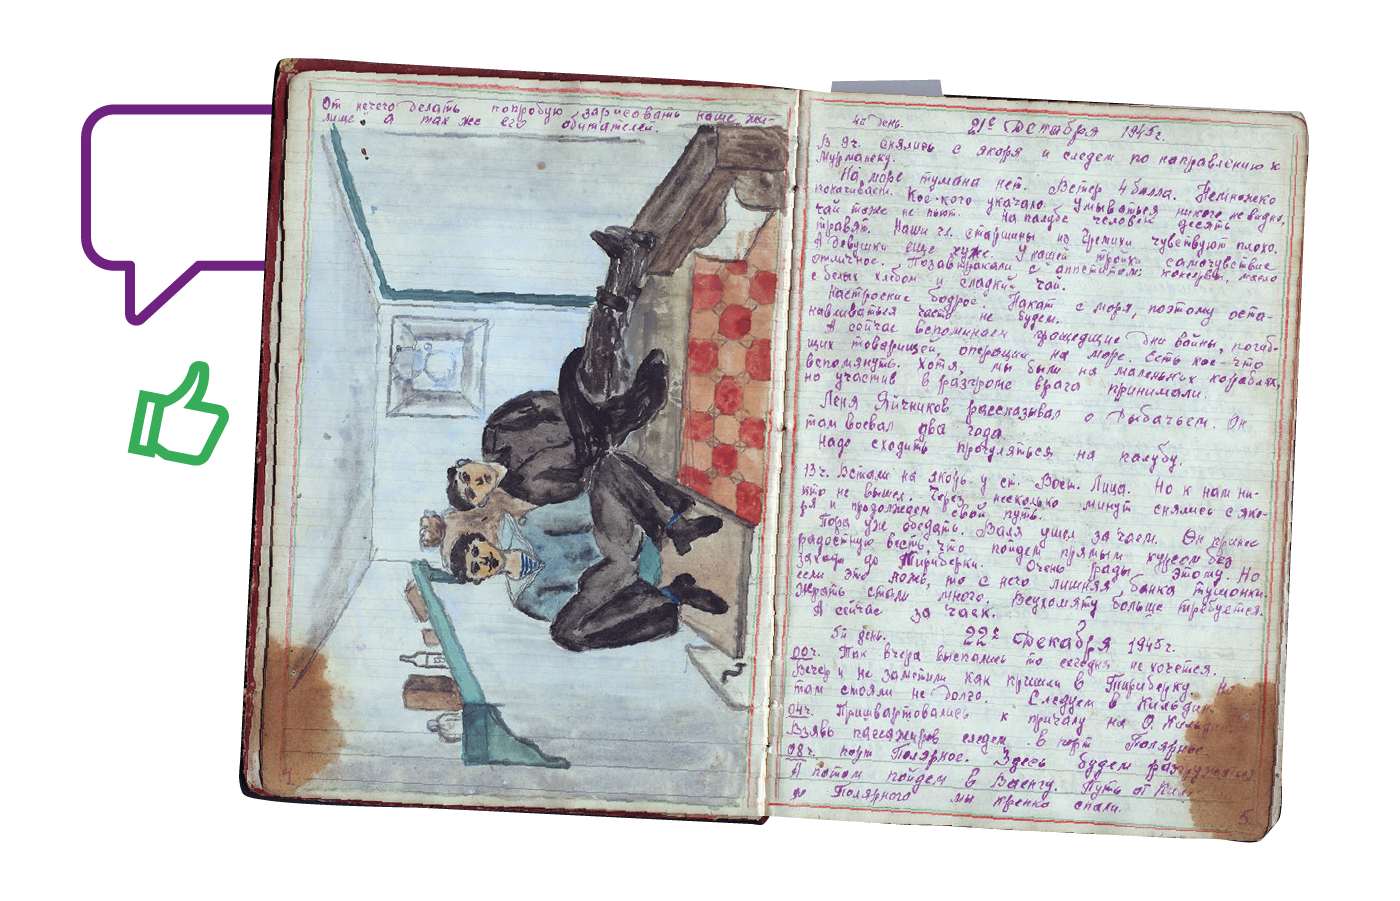 От нечего делать попробую зарисовать наше жи-
лище а так же его обитателей.
4.
4й день. 21е Декабря 1945г.
В 9ч. снялись с якоря и следем по направлению к
Мурманску.
На море тумана нет. Ветер 4 балла. Немножеко
покачивает. Кое-кого укачало. Умываться никого не видно,
чай тоже не пьют. На палубе человек десять
травят. Наши гл. старшины из Гремихи чувствуют плохо.
А девушки еще хуже. У нашей тройки самочувствие
отличное. Позавтракали с аппетитом: консервы, масло
с белых хлебом и сладкий чай.
Настроение бодрое. Накат с моря, поэтому оста-
навливаться часто не будем.
А сейчас вспоминаем прошедшие дни войны, погиб-
щих товарищей, операции на море. Есть кое-что
вспомянуть. Хотя, мы были на маленьких кораблях,
но участив в разгроме врага принимали.
Леня Яйчников рассказывал о Рыбачьем. Он
там воевал два года.
Надо сходить прогуляться на палубу.
13ч. Встали на якорь у ст. Вост. Лица. Но к нам ни-
кто не вышел. Через несколько минут снялись с яко-
ря и продолжаем свой путь.
Пора уже обедать. Валя ушел за чаем. Он принес
радостную весть, что пойдем прямым курсом без
захода до Териберки. Очень рады этому. Но
если это ложь, то с него лишняя банка тушонки.
Жрать стали много. Веухомяту больше требуется.
А сейчас за чаек.
5й день. 22е Декабря 1945г.
00ч. Так вчера выспались то сегодня не хочется.
Вечер и не заметили как пришли в Териберку. Но
там стояли не долго. Следуем в Кильдин.
04ч. Пришвартовались к причалу на О. Кильдин
Взявь пассажиров следем в порт Полярное.
08ч. порт Полярное. Здесь будем разгружаться
А потом пойдем в Ваенгу. Путь от Киль
до Полярного мы крепко спали.
5.